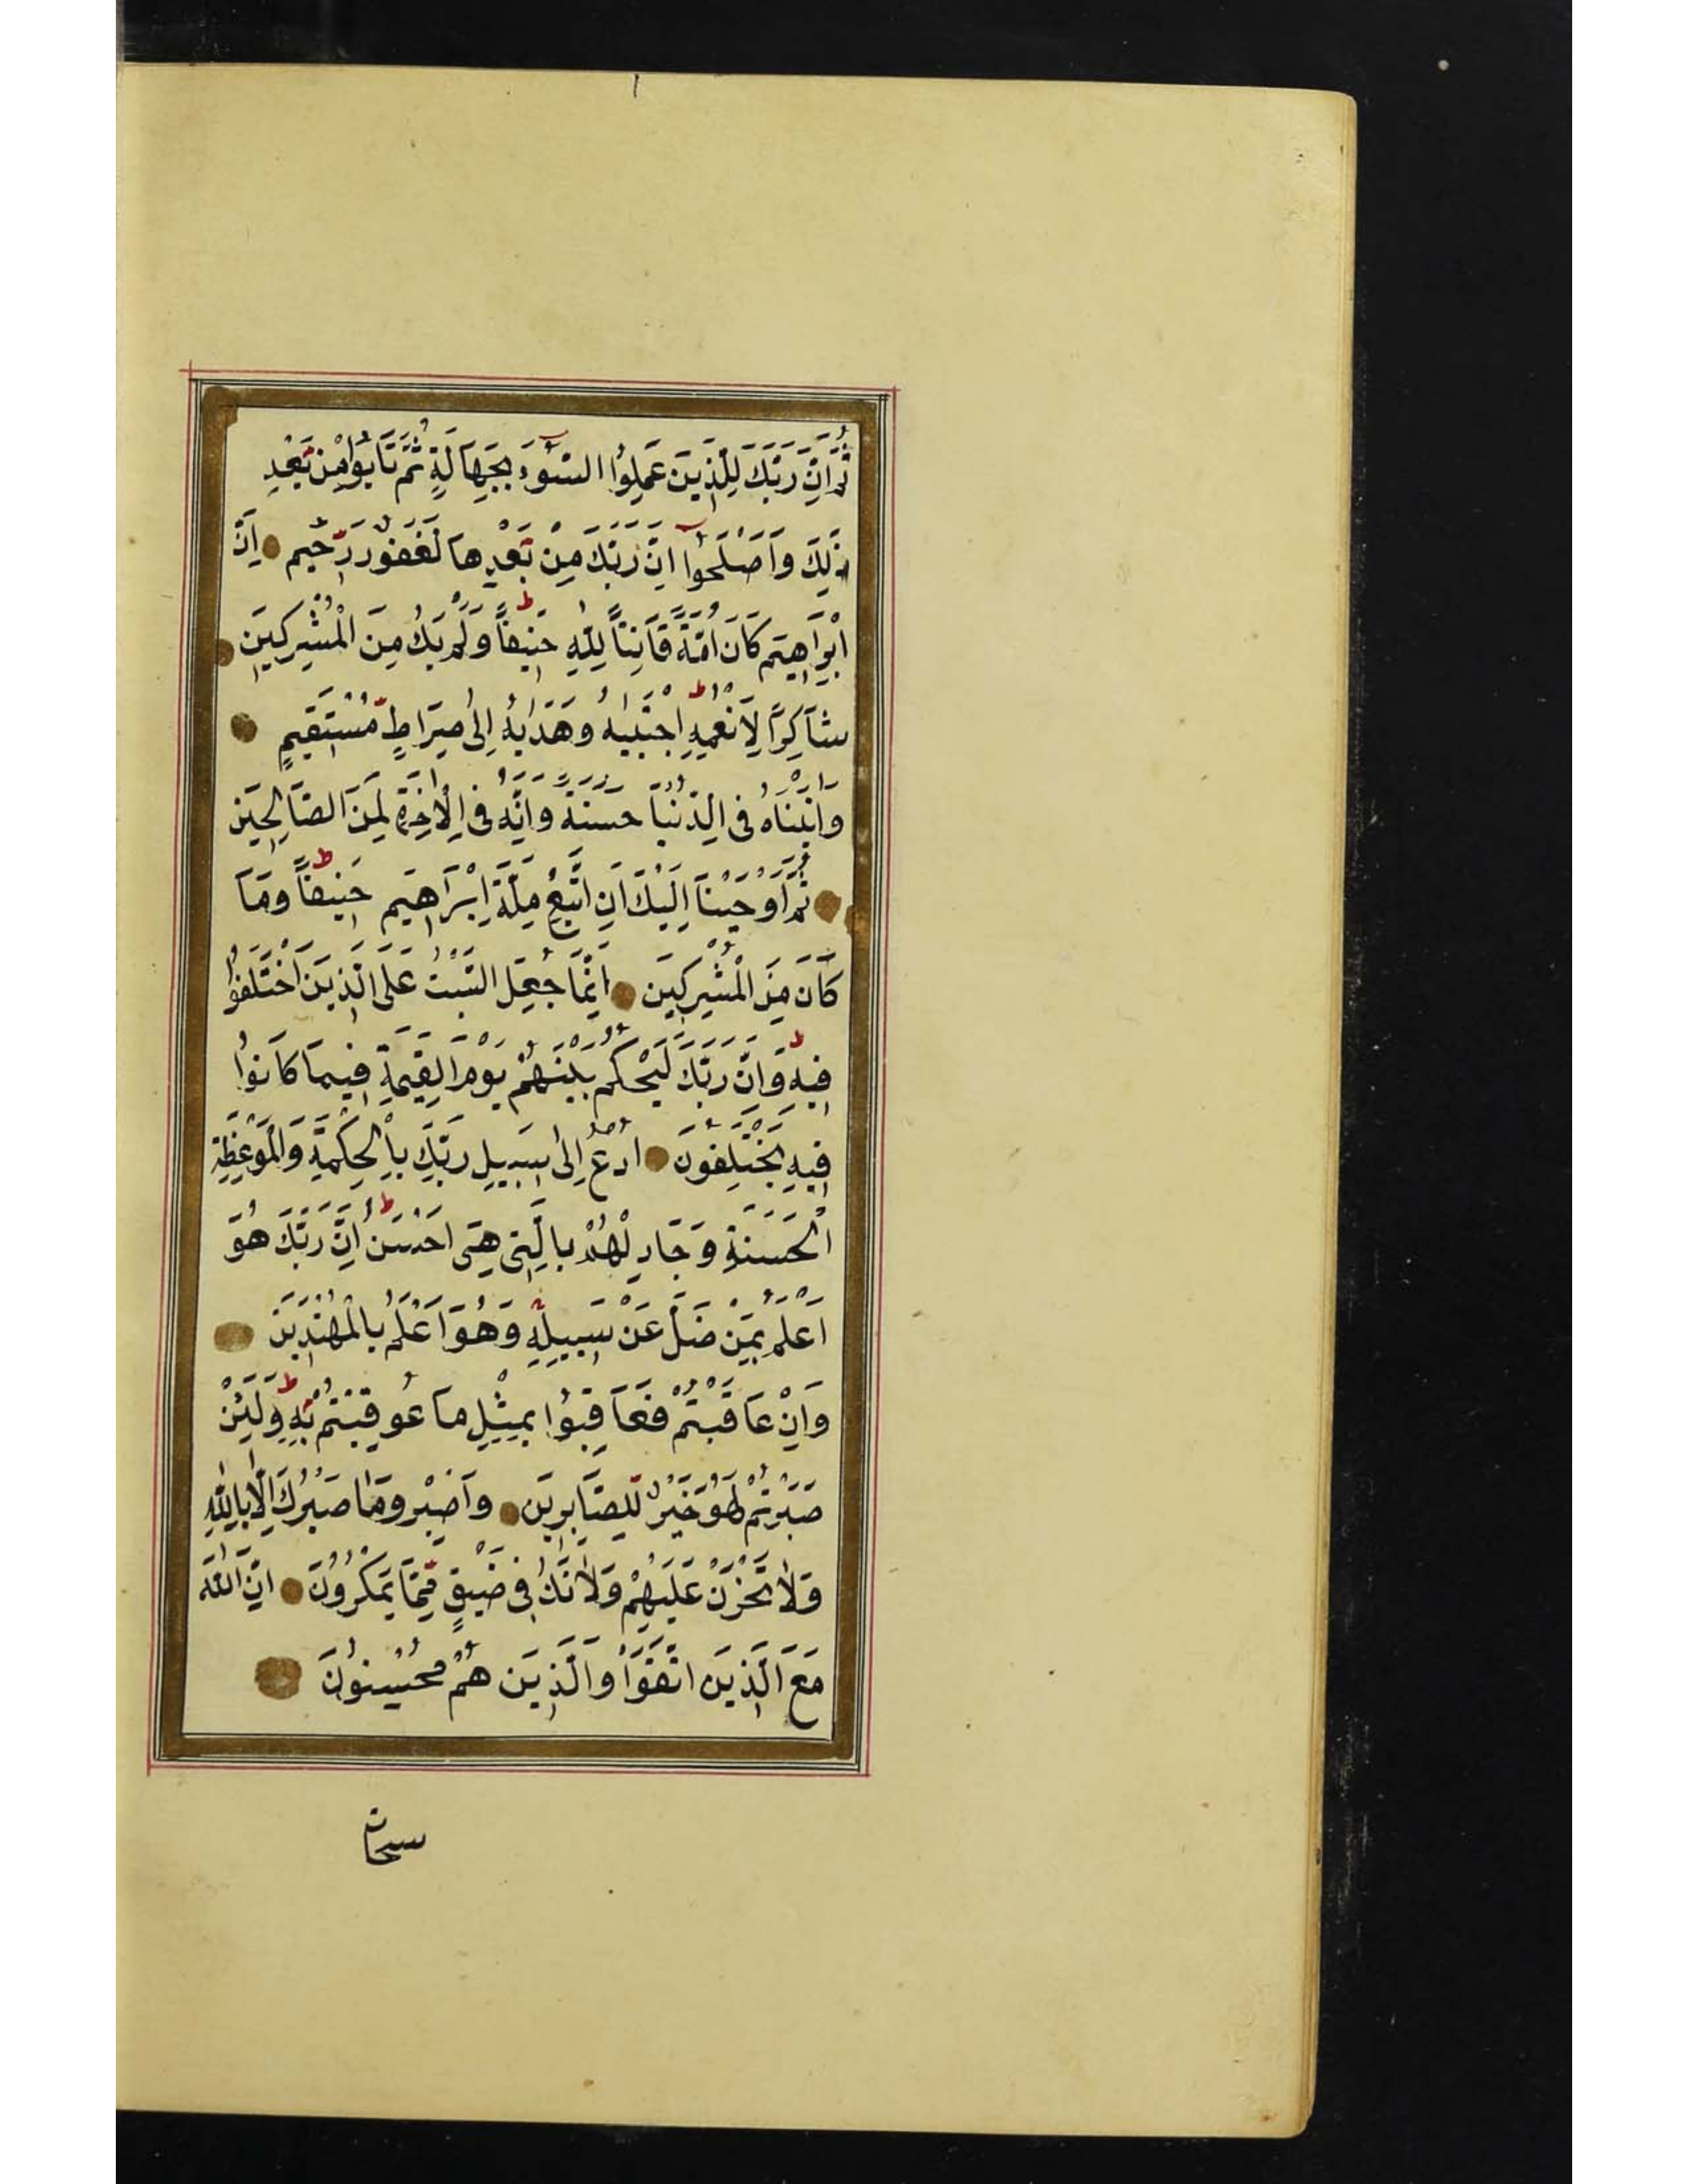 ثُمَّ اِنَّ رَبَّكَ لِلَّذِينَ عَمِلُوا السُّوٓءَ بِجَهَالَةٍ ثُمَّ تَابُوا مِنْ بَعْدِ
ذٰلِكَ وَاَصْلَحُوٓا اِنَّ رَبَّكَ مِنْ بَعْدِهَا لَغَفُورٌ رَّحِيمٌ اِنَّ
اِبْرَاهِيمَ كَانَ اُمَّةً قَانِتًا لِلّٰهِ حَنِيفًا ط وَلَمْ يَكُ مِنَ الْمُشْرِكِينَ
شَاكِرًا لِاَنْعُمِهِ ط اِجْتَبٰيهُ وَهَدٰيهُ اِلٰى صِرَاطٍ مُّسْتَقِيمٍ
وَاٰتَيْنَاهُ فِى الدُّنْيَا حَسَنَةً وَاِنَّهُ فِى الْاٰخِرَةِ لَمِنَ الصَّالِحِينَ
ثُمَّ اَوْحَيْنَا اِلَيْكَ اَنِ اتَّبِعْ مِلَّةَ اِبْرَاهِيمَ حَنِيفًا ط وَمَا
كَانَ مِنَ الْمُشْرِكِينَ اِنَّمَا جُعِلَ السَّبْتُ عَلَى الَّذِينَ اخْتَلَفُوا
فِيهِ ط وَاِنَّ رَبَّكَ لَيَحْكُمُ بَيْنَهُمْ يَوْمَ الْقِيٰمَةِ فِيمَا كَانُوا
فِيهِ يَخْتَلِفُونَ اُدْعُ اِلٰى سَبِيلِ رَبِّكَ بِالْحِكْمَةِ وَالْمَوْعِظَةِ
الْحَسَنَةِ وَجَادِلْهُمْ بِالَّتِى هِىَ اَحْسَنُ ط اِنَّ رَبَّكَ هُوَ
اَعْلَمُ بِمَنْ ضَلَّ عَنْ سَبِيلِهِ وَهُوَ اَعْلَمُ بِالْمُهْتَدِينَ
وَاِنْ عَاقَبْتُمْ فَعَاقِبُوا بِمِثْلِ مَا عُوقِبْتُمْ بِهِ ط وَلَئِنْ
صَبَرْتُمْ لَهُوَ خَيْرٌ لِّلصَّابِرِينَ وَاصْبِرْ وَمَا صَبْرُكَ اِلَّا بِاللّٰهِ
وَلَا تَحْزَنْ عَلَيْهِمْ وَلَا تَكُ فِى ضَيْقٍ مِّمَّا يَمْكُرُونَ اِنَّ اللّٰهَ
مَعَ الَّذِينَ اتَّقَوْا وَالَّذِينَ هُمْ مُحْسِنُونَ
سبحان